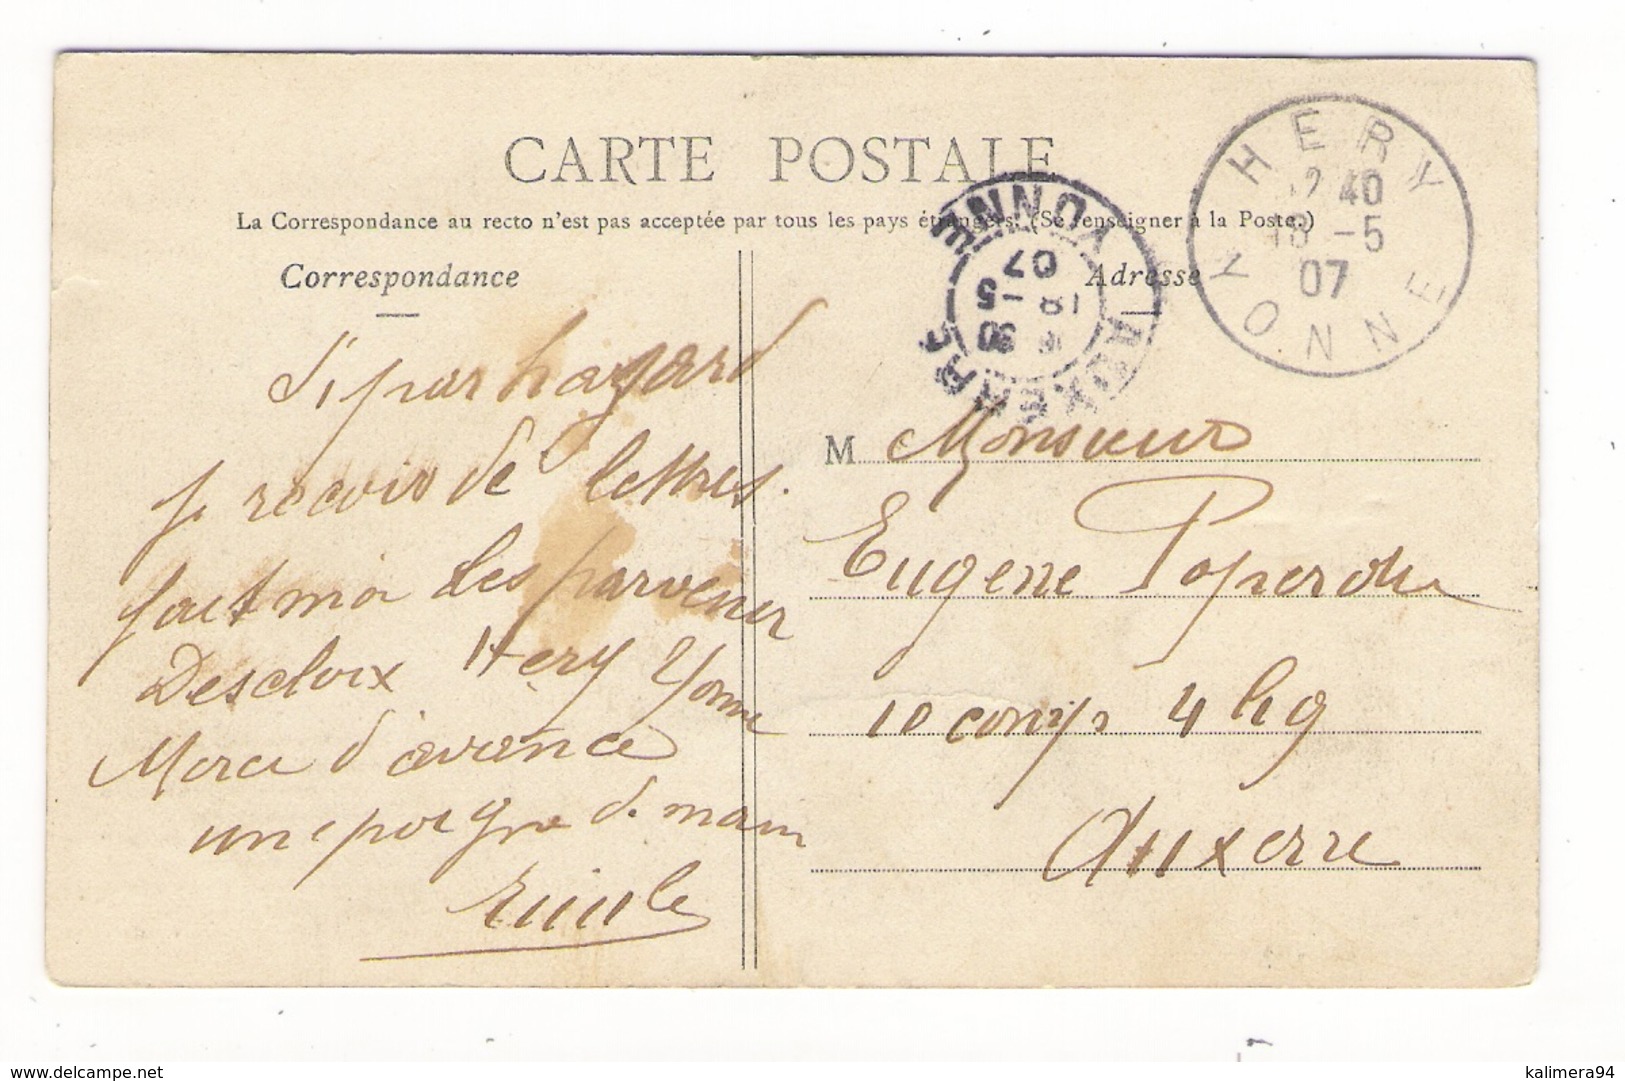 CARTE POSTALE
La Correspondance au recto n'est pas acceptée par tous les pays étrangers. (Se renseigner à la Poste.)
Correspondance
Si par hazard
je recois de lettres.
fait moi les parvenir
Descloix Hery Yonne
Merci d'avance
une poigne de main
Emile
Adresse
M Monsieur
Eugene
10 comp 4 lig
Auxerre
HERY
12 40
18 -5
07
YONNE
AUXERRE
30
18 -5
07
YONNE
www.delcampe.net
kalimera94